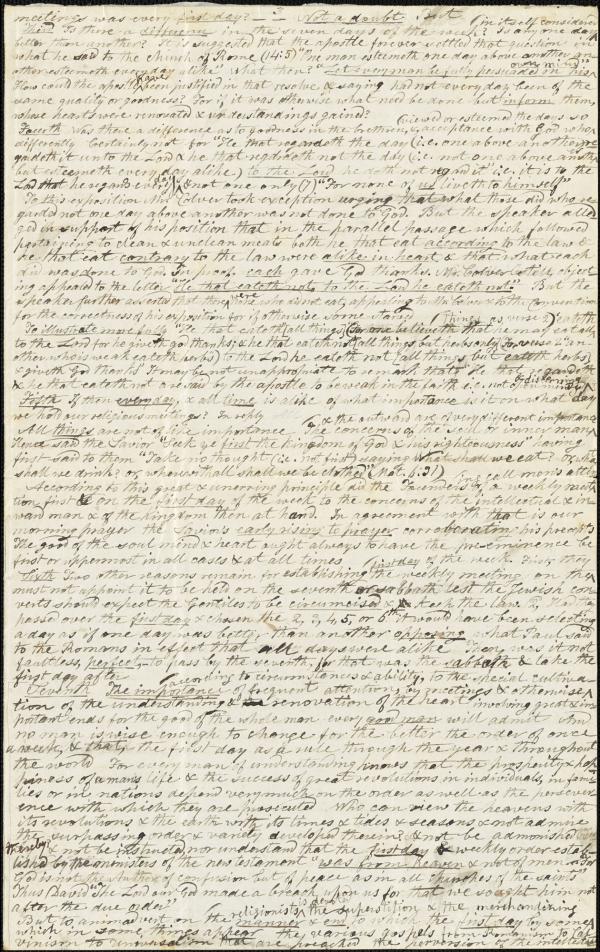 meetings was every first day? — Not a doubt. But
in itself considered
Third Is there a difference in the seven days of the week? Is any one day
better than another? It is suggested that the apostle forever settled that question in
what he said to the church of Rome (14:5) "One man esteemeth one day above another an-
other esteemeth every day alike" what then? "Let every man be fully persuaded in his
own mind"
How could the apostle have been justified in that resolve & saying had not every day been of the
same quality or goodness? For if it was otherwise what need be done but inform them,
whose hearts were renovated & understandings gained?
viewed or esteemed the days so
Fourth Was there a difference as to goodness in the brethren, & acceptance with God who
differently Certainly not for "He that regardeth the day (i.e. one above another) re-
gardeth it unto the Lord & he that regardeth not the day (i.e. not one above another
but esteemeth every day alike) to the Lord he doth not regard it" i.e. it is to the
Lord that he regards every day & not one only (7) "For none of us liveth to himself"
To this exposition Mr. Colver took exception urging that what those did who re-
garded not one day above another was not done to God. But the speaker alled-
ged in support of his position that in the parallel passage which followed
pertaining to clean & unclean meats both he that eat according to the law &
he that eat contrary to the law were alike in heart & that what each
did was done to God In proof each gave God thanks. Mr. Colver still object-
ing appeald to the letter "He that eateth not, to the Lord he eateth not." But the
speaker further asserts that there were none who do not eat, appealing to Mr Colver & to the Convention
for the correctness of his exposition for if otherwise some starved
things as verse 2) eateth
To illustrate more fully "He that eateth (all things) (for one believeth that he may eat all
to the Lord for he giveth God thanks; & he that eateth not (all things, but herbs only for verse 2 "an-
other who is weak eateth herbs) to the Lord he eateth not (all things but eateth herbs)
& giveth God thanks" It may be not unappropriate to remark that "He that regardeth
& he that eateth not are said by the apostle to be weak in the faith i.e. not of discerning
Fifth If then every day, & all time is alike of what importance is it on what day
we hold our religious meetings? In reply
& the outward are of very different importance
All things are not of like importance The concerns of the soul or inner man
Hence said the Savior "Seek ye first the kingdom of God & his righteousness" having
first said to them "Take no thought (i.e. not first) saying What shall we eat? or what
shall we drink? or wherewithal shall we be clothed" (Mat. 6:31)
first call men's atten-
According to this great & unerring principle did the Founders of a weekly meeting
tion first & on the first day of the week to the concerns of the intellectual & in-
ward man & of the kingdom then at hand. In agreement with that is our
morning prayer the Savior's early rising to prayer corroborating his precepts
The good of the soul mind & heart ought always to have the pre-eminence be
first or uppermost in all cases & at all times
first day of the week. First, they
Sixth Two other reasons remain for establishing the weekly meeting on the
must not appoint it to be held on the seventh or sabbath lest the Jewish con-
verts should expect the Gentiles to be circumcised & keep the law. 2, Had they
passed over the first day & chosen the 2, 3, 4, 5, or 6th it would have been selecting
a day as if one day was better than another opposing what Paul said
to the Romans in effect that all days were alike Then, was it not
faultless, perfect, — to pass by the seventh, for that was the sabbath & take the
first day after
according to circumstances & ability, to the special cultiva-
Seventh The importance of frequent attention, by meetings & otherwise
tion of the understanding & renovation of the heart involving great & im-
portant ends for the good of the whole man every good man will admit And
no man is wise enough to change for the better the order of once
a week, & that, the first day as a rule through the year & throughout
the world For every man of understanding knows that the prosperity & hap-
piness of a man's life & the success of great revolutions in individuals, in fami-
lies or in nations depend very much on the order as well as the persever-
ence with which they are prosecuted Who can view the heavens with
its revolutions & the earth with its times & tides & seasons & not admire
the surpassing order & variety developed therein? & not be admonished
thereby, & not be instructed nor understand that the first day & weekly order estab-
lished by the ministers of the new testament "was from heaven & not of men" For
God is not the Author of confusion but of peace as in all churches of the saints"
Thus David "The Lord our God made a breach upon us for that we sought him not
after the due order"
religionists the superstition & the merchandizing
But to animadvert on the manner in which the first day by some
which in some things appear the various gospels from Romanism to Cal-
vinism to Universalism that are preached the perversion of the intellect